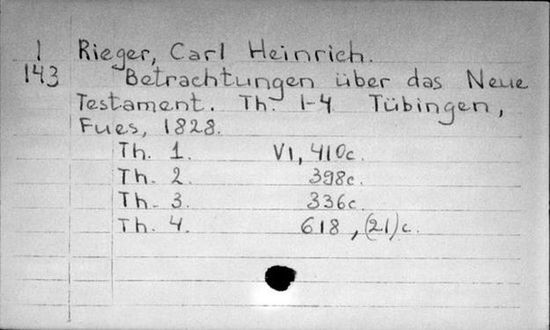 1 Rieger, Carl Heinrich.
143 Betrachtungen über das Neue
Testament. Th. 1-4 Tübingen,
Fues, 1828.
Th. 1. VI, 410c.
Th. 2 398c.
Th. 3 336c.
Th. 4. 618, (21)c.